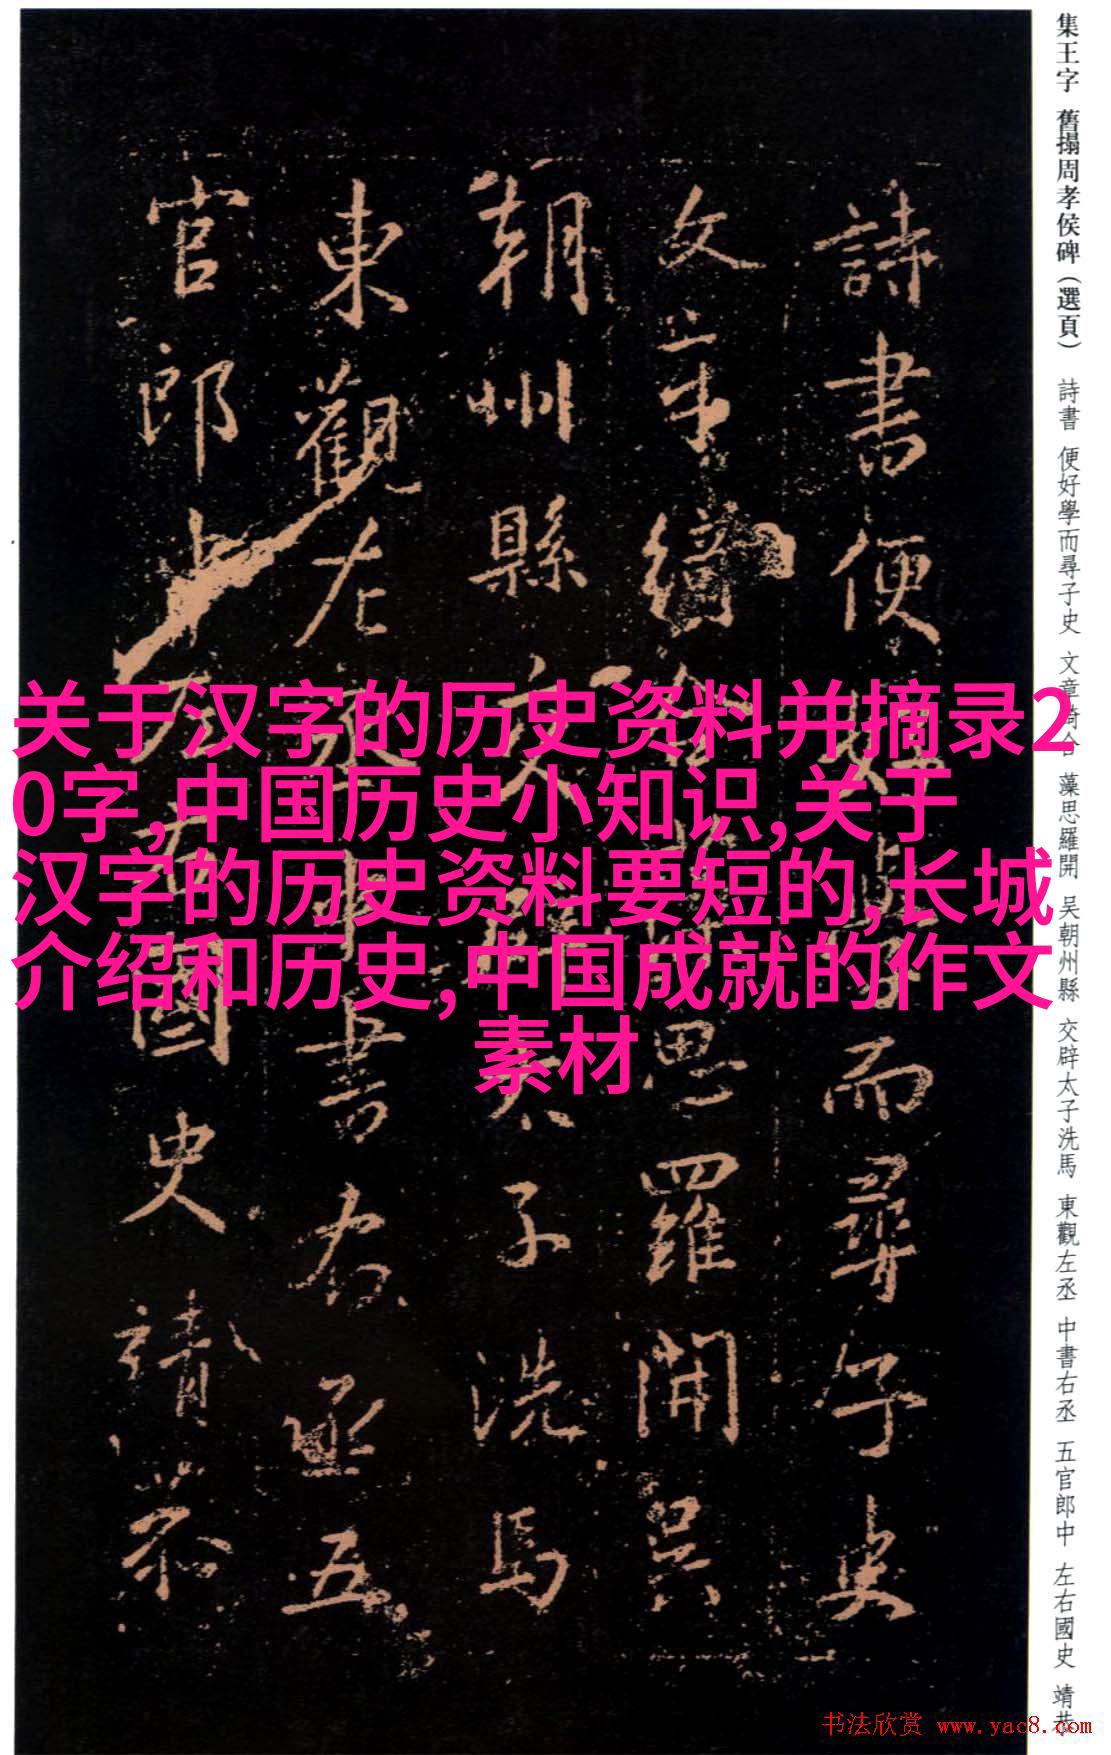 集王字 舊搨周孝侯碑（選頁） 詩書 便好學而尋子史 文章綺合 藻思羅開 吴朝州縣 交辟太子洗馬 東觀左丞 中書右丞 五官郎中 左右國史 靖恭
詩書便好學而尋子史
文章綺合藻思羅開吴
朝州縣交辟太子洗馬
東觀左丞中書右丞五
官郎中左右國史靖恭
关于汉字的历史资料并摘录2
0字,中国历史小知识,关于
汉字的历史资料要短的,长城
介绍和历史,中国成就的作文
素材
书法欣赏 www.yac8.com